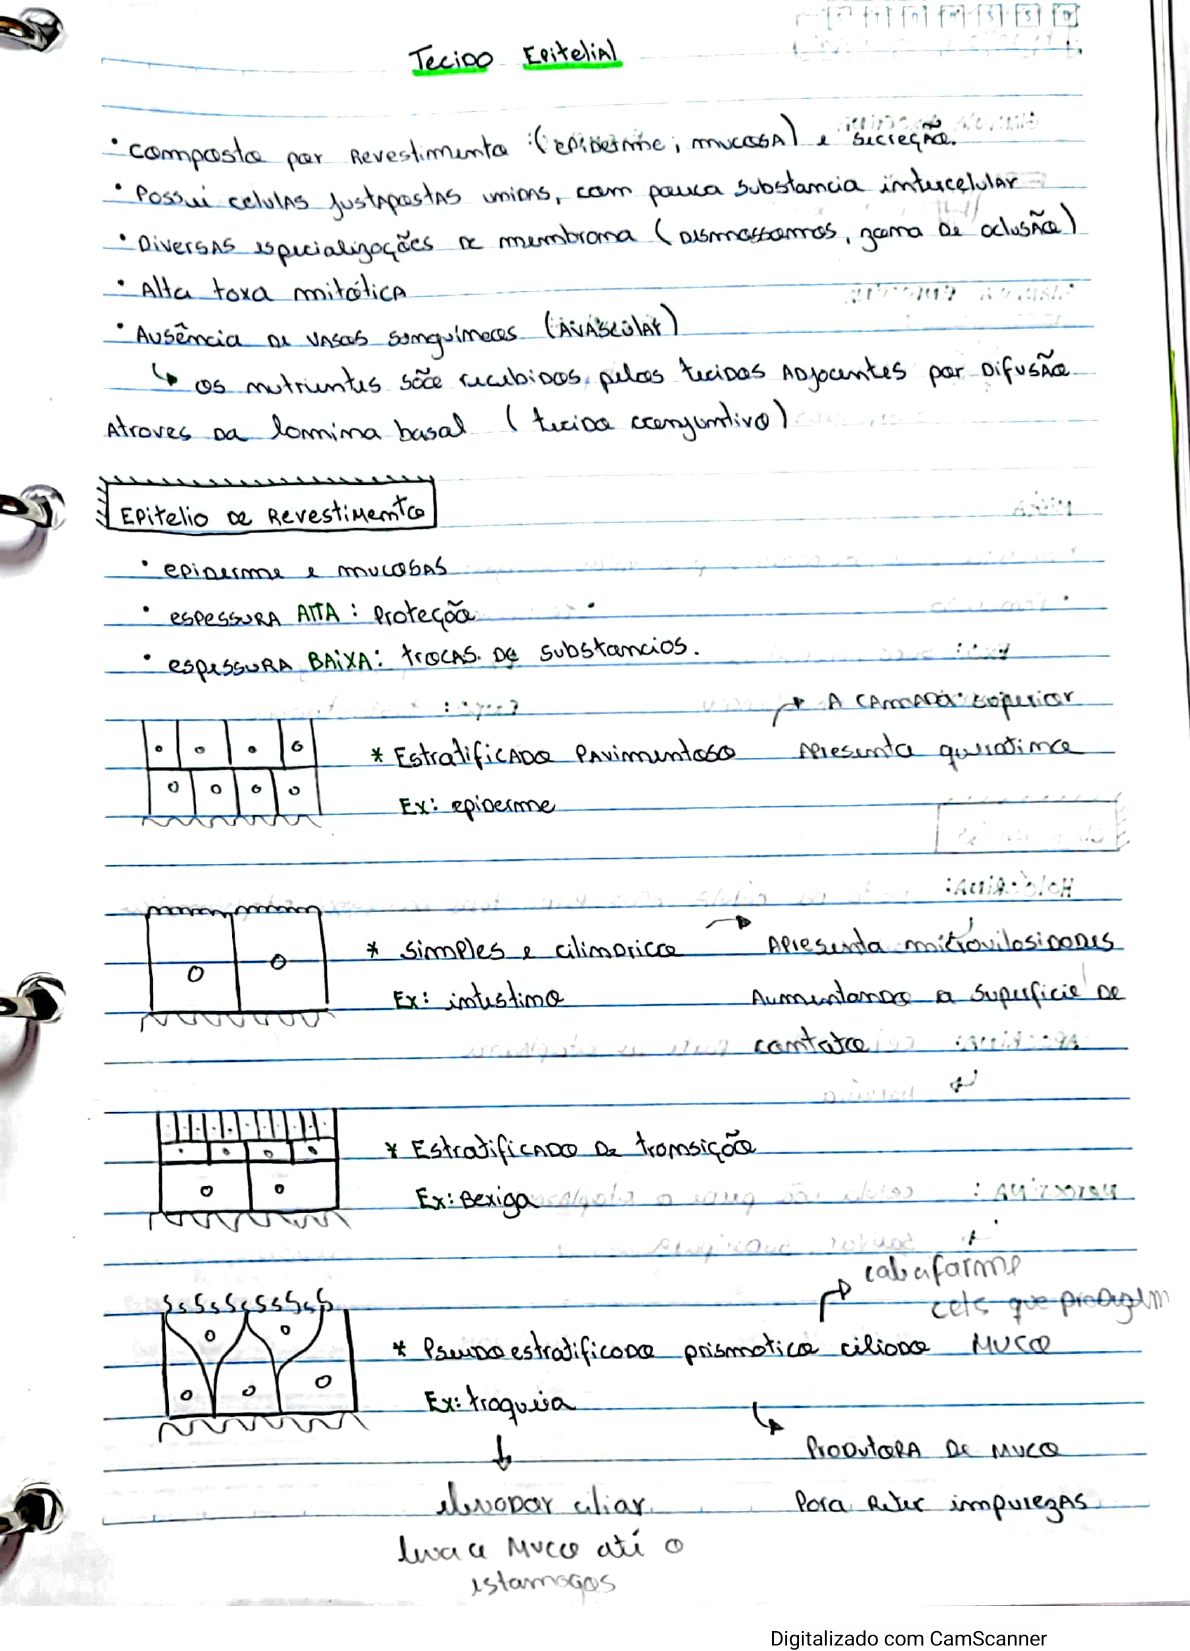 Tecido Epitelial
• Composto por Revestimento (epiderme, mucosa) e secreção.
• Possui celulas justapostas unidas, com pouca substancia intercelular
• Diversas especializações de membrana (desmossomos, zona de oclusão)
• Alta taxa mitótica
• Ausência de vasos sanguíneos (avascular)
↳ os nutrientes são recebidos pelos tecidos adjacentes por difusão
Atraves da lamina basal (tecido conjuntivo)
Epitelio de Revestimento
• epiderme e mucosas
• espessura Alta: Proteção
• espessura Baixa: trocas de substancias.
A camada superior
* Estratificado Pavimentoso Apresenta queratina
Ex: epiderme
* simples e cilindrico → Apresenta microvilosidades
Ex: intestino Aumentando a superficie de
contato
* Estratificado de transição
Ex: Bexiga
caliciforme
cels que produzem
* Pseudoestratificado prismatico ciliado muco
Ex: traqueia
Produtora de muco
elevador ciliar Para Reter impurezas
leva o muco até o
estamogos
Digitalizado com CamScanner